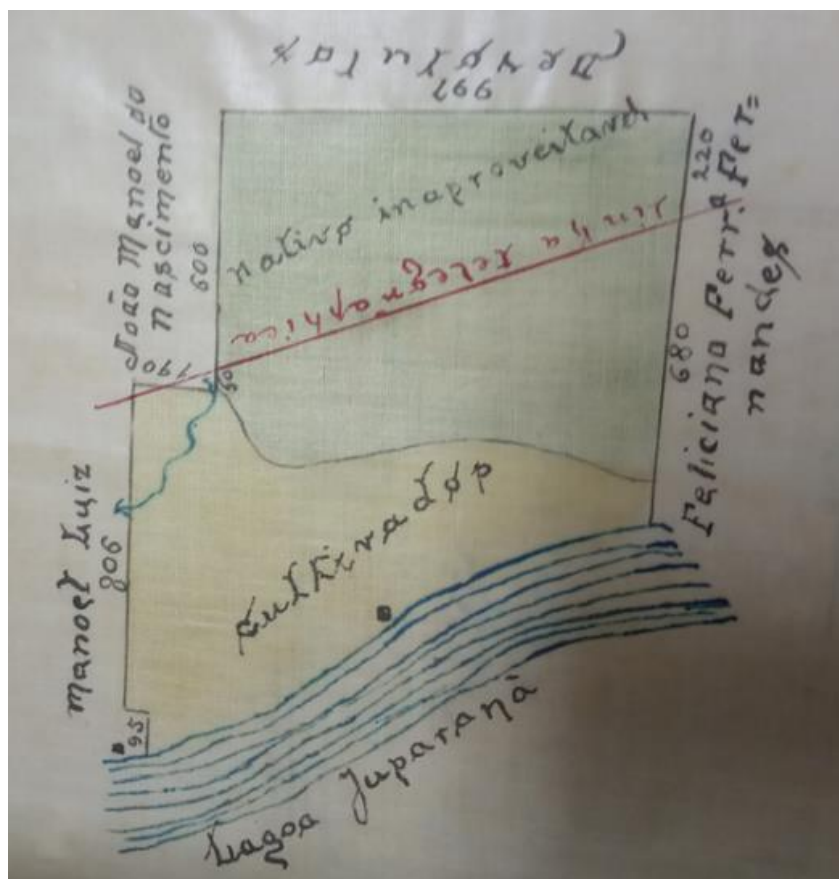 Devolutas
997
João Manoel do
nascimento
600
190
50
nativo inaproveitavel
linha telegraphica
220
680
Feliciana Ferrª Fer=
nandes
Manoel Luiz
806
95
cultivados
Lagoa Juparanã